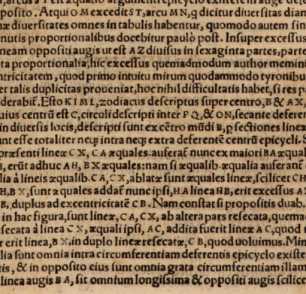 posito. Atqui O M excedit S T, arcu M N, q dicitur diuersitas di
æ diuersitates omnes in tabulis habentur, quomodo autem in
nutis proportionalibus docebitur paulò post. Insuper excessus
neam oppositi augis ut est A Z diuisus in sexaginta partes, parte
ta proportionalia; hic excessus quemadmodum author memin
ntricitatem, quod primo intuitu mirum quodammodo tyronibus
et talis duplicitas proueniat, hoc nihil difficultatis habet, si res p
derabiť. Esto K I M L, zodiacus descriptus super centro, B & A X
uius centrũ est C, circuli descripti inter P Q, & O N, secante deferent
in diuersis locis, descripti sunt ex cẽtro mũdi B, p sectiones lineæ
unt esse totaliter neq; intra neq; extra deferentẽ centrũ epicycli. S
præsenti lineæ C X, C A æquales. auferat nunc ex maiori B A æqual
, erit adhuc A H, B X æquales: nam si æqualib. æqualia auferant
ta à lineis æqualib. C A, C X, ablatæ sunt æquales lineæ, scilicet C H
H, B X, sunt æquales addať nunc ipsi, H A linea H B, erit excessus A
B, duplus ad excentricitatẽ C B. Nam constat si propositis duab.
in hac figura, sunt lineæ, C A, C X, ab altera pars resecata, quem
secata à linea C X, æquali ipsi, A C, addita fuerit lineæ A C, quod a
r erit linea, B X, in duplo lineæ resecatæ, C B, quod uoluimus. Min
lia sunt omnia intra circumferentiam deferentis epicyclo existen
tis, & in opposito eius sunt omnia grata circumferentiam illam
linea augis B A, sit omnium longissima & oppositi augis scilice